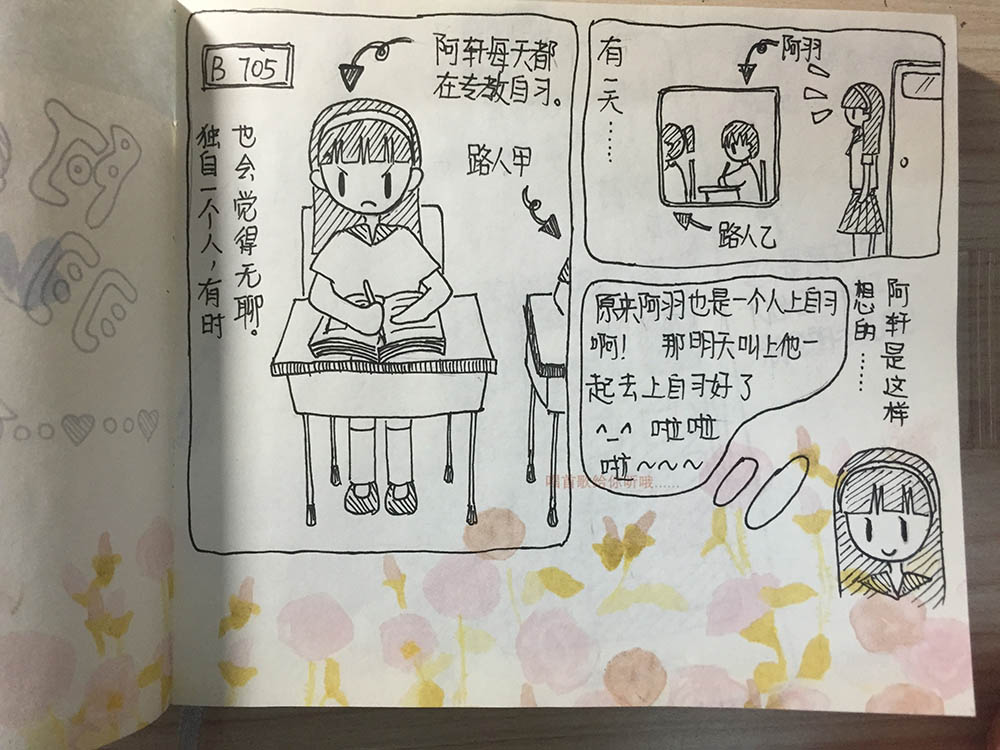 B 705
阿轩每天都
在专教自习。
路人甲
独自一个人，有时
也会觉得无聊。
有一天……
阿羽
路人乙
原来阿羽也是一个人上自习
啊！ 那明天叫上他一
起去上自习好了
^_^ 啦啦
啦~~~
唱首歌给你听哦……
阿轩是这样
想的……